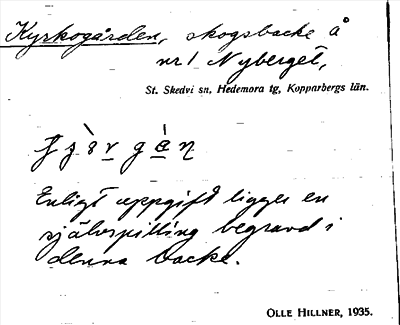 Kyrkogården, skogsbacke å
nr 1 Nyberget,
St. Skedvi sn, Hedemora tg, Kopparbergs län.
Enligt uppgift ligger en
självspilling begravd i
denna backe.
OLLE HILLNER, 1935.